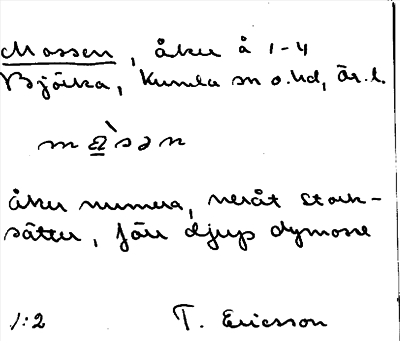 Mossen, åker å 1-4
Björka, Kumla sn o. hd, Ör. l.
åker numera, neråt Stock-
sätter, förr djup dymosse
1:2 T. Ericsson